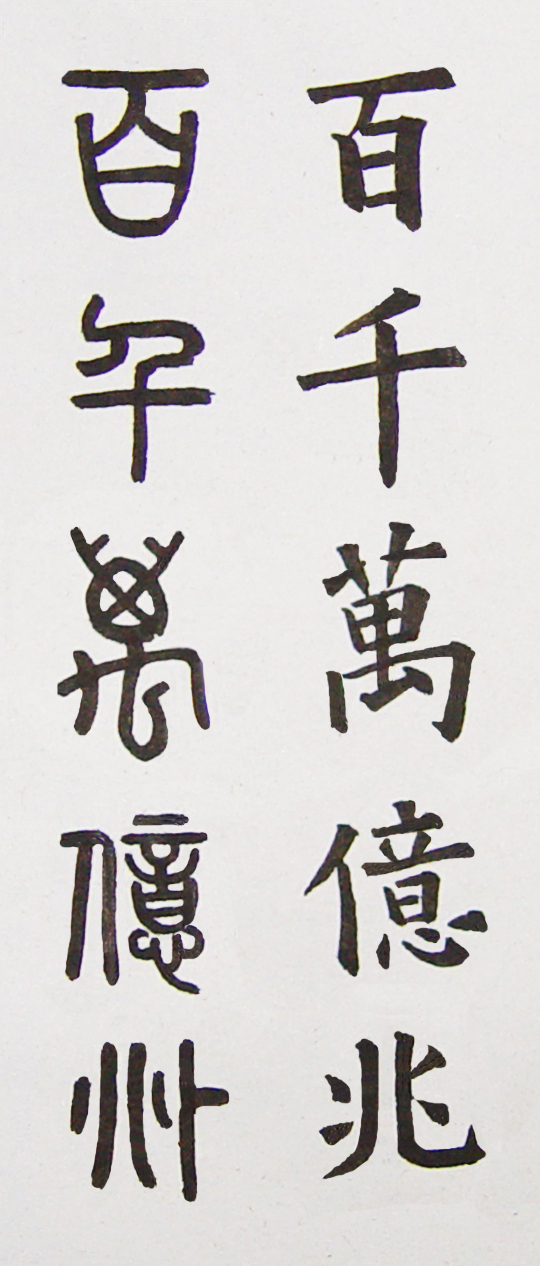 百千萬億兆
百千萬億兆